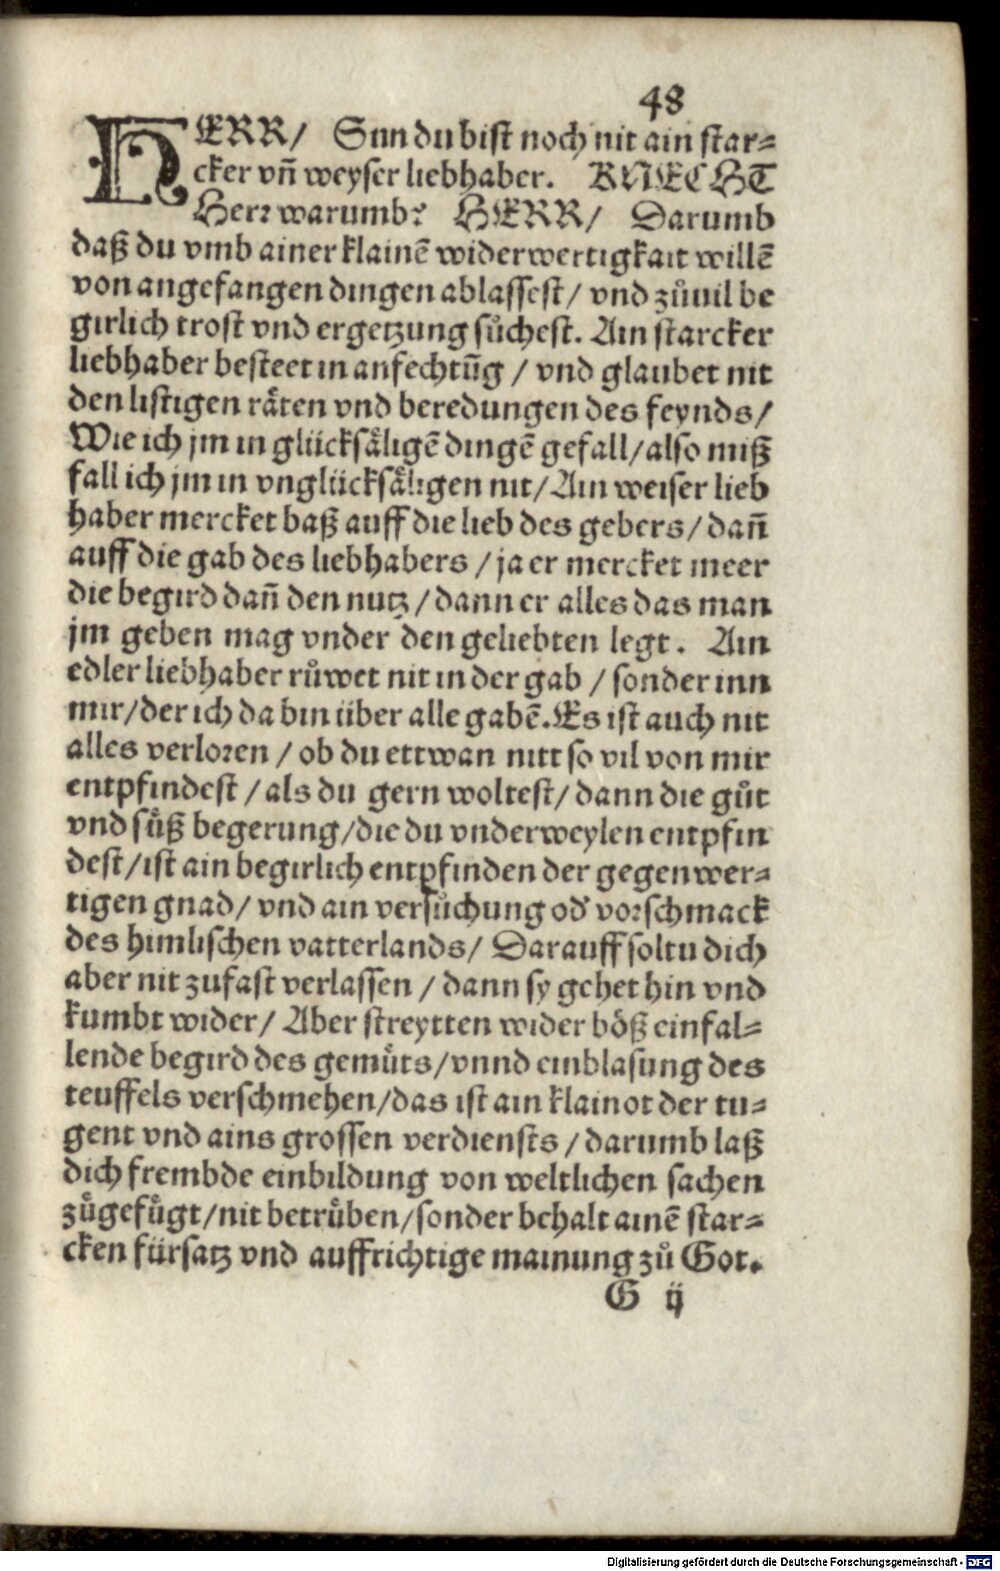 48
HERR/ Sun du bist noch nit ain star-
cker vñ weyser liebhaber. KNECHT
Herr warumb? HERR/ Darumb
daß du vmb ainer klainē widerwertigkait willē
von angefangen dingen ablassest/ vnd zůuil be
girlich trost vnd ergetzung sůchest. Ain starcker
liebhaber besteet in anfechtūg / vnd glaubet nit
den listigen räten vnd beredungen des feynds/
Wie ich jm in glücksäligē dingē gefall/also miß
fall ich jm in vnglücksäligen nit/Ain weiser lieb
haber mercket baß auff die lieb des gebers/dañ
auff die gab des liebhabers / ja er mercket meer
die begird dañ den nutz/dann er alles das man
jm geben mag vnder den geliebten legt. Ain
edler liebhaber růwet nit in der gab / sonder inn
mir/der ich da bin über alle gabē. Es ist auch nit
alles verloren / ob du ettwan nitt so vil von mir
entpfindest / als du gern woltest/ dann die gůt
vnd süß begerung/die du vnderweylen entpfin
dest/ist ain begirlich entpfinden der gegenwer-
tigen gnad/ vnd ain versůchung od' vorschmack
des himlischen vatterlands/ Darauff soltu dich
aber nit zufast verlassen / dann sy gehet hin vnd
kumbt wider/ Aber streytten wider böß einfal-
lende begird des gemüts/vnnd einblasung des
teuffels verschmehen/das ist ain klainot der tu-
gent vnd ains grossen verdiensts / darumb laß
dich frembde einbildung von weltlichen sachen
zůgefügt/nit betrüben/sonder behalt ainē star-
cken fürsatz vnd auffrichtige mainung zů Got.
G ij
Digitalisierung gefördert durch die Deutsche Forschungsgemeinschaft - DFG